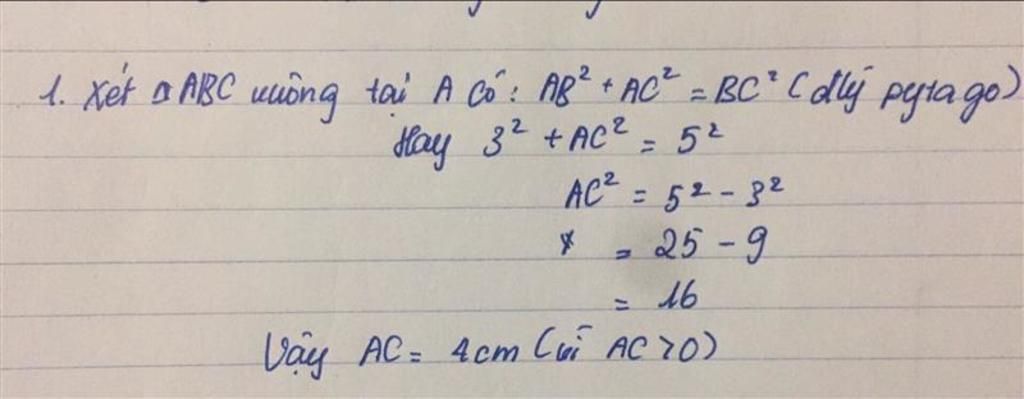 1. Xét △ABC vuông tại A có: AB² + AC² = BC² (đlý pytago)
Hay 3² + AC² = 5²
AC² = 5² - 3²
= 25 - 9
= 16
Vậy AC = 4cm (vì AC > 0)